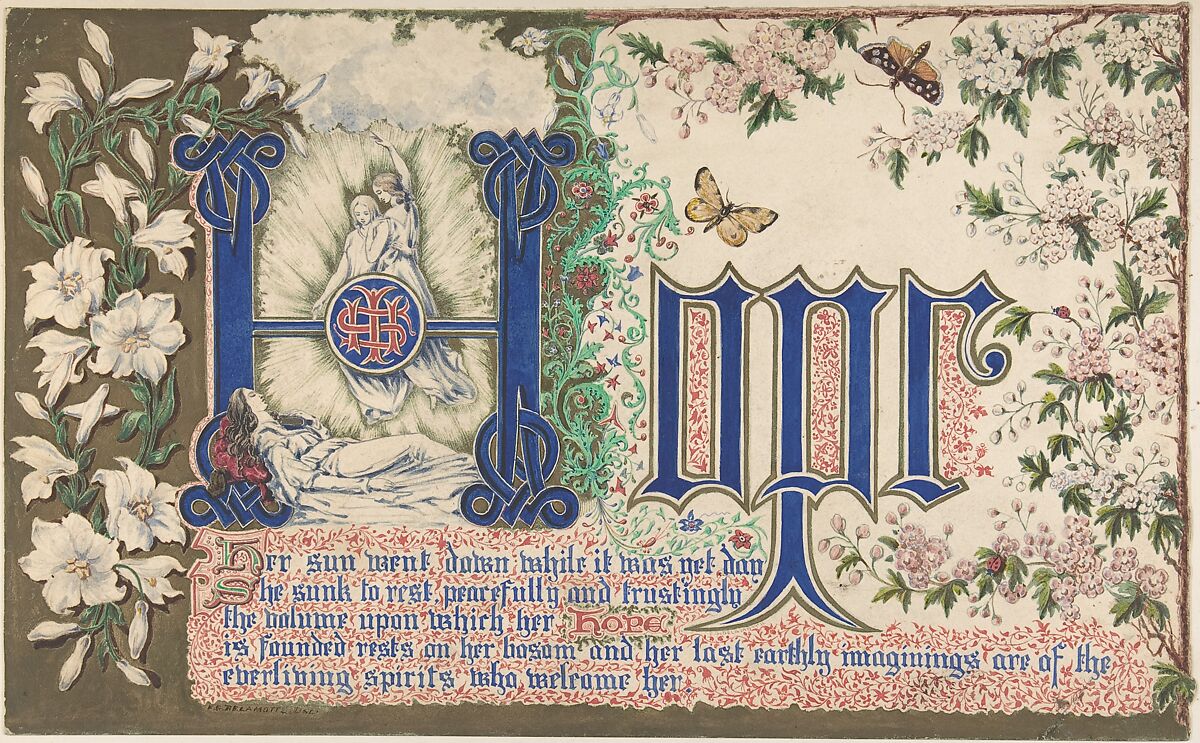 Hope
IHS
Her sun went down while it was yet day
She sunk to rest, peacefully and trustingly
the volume upon which her Hope
is founded rests on her bosom and her last earthly imaginings are of the
everliving spirits who welcome her.